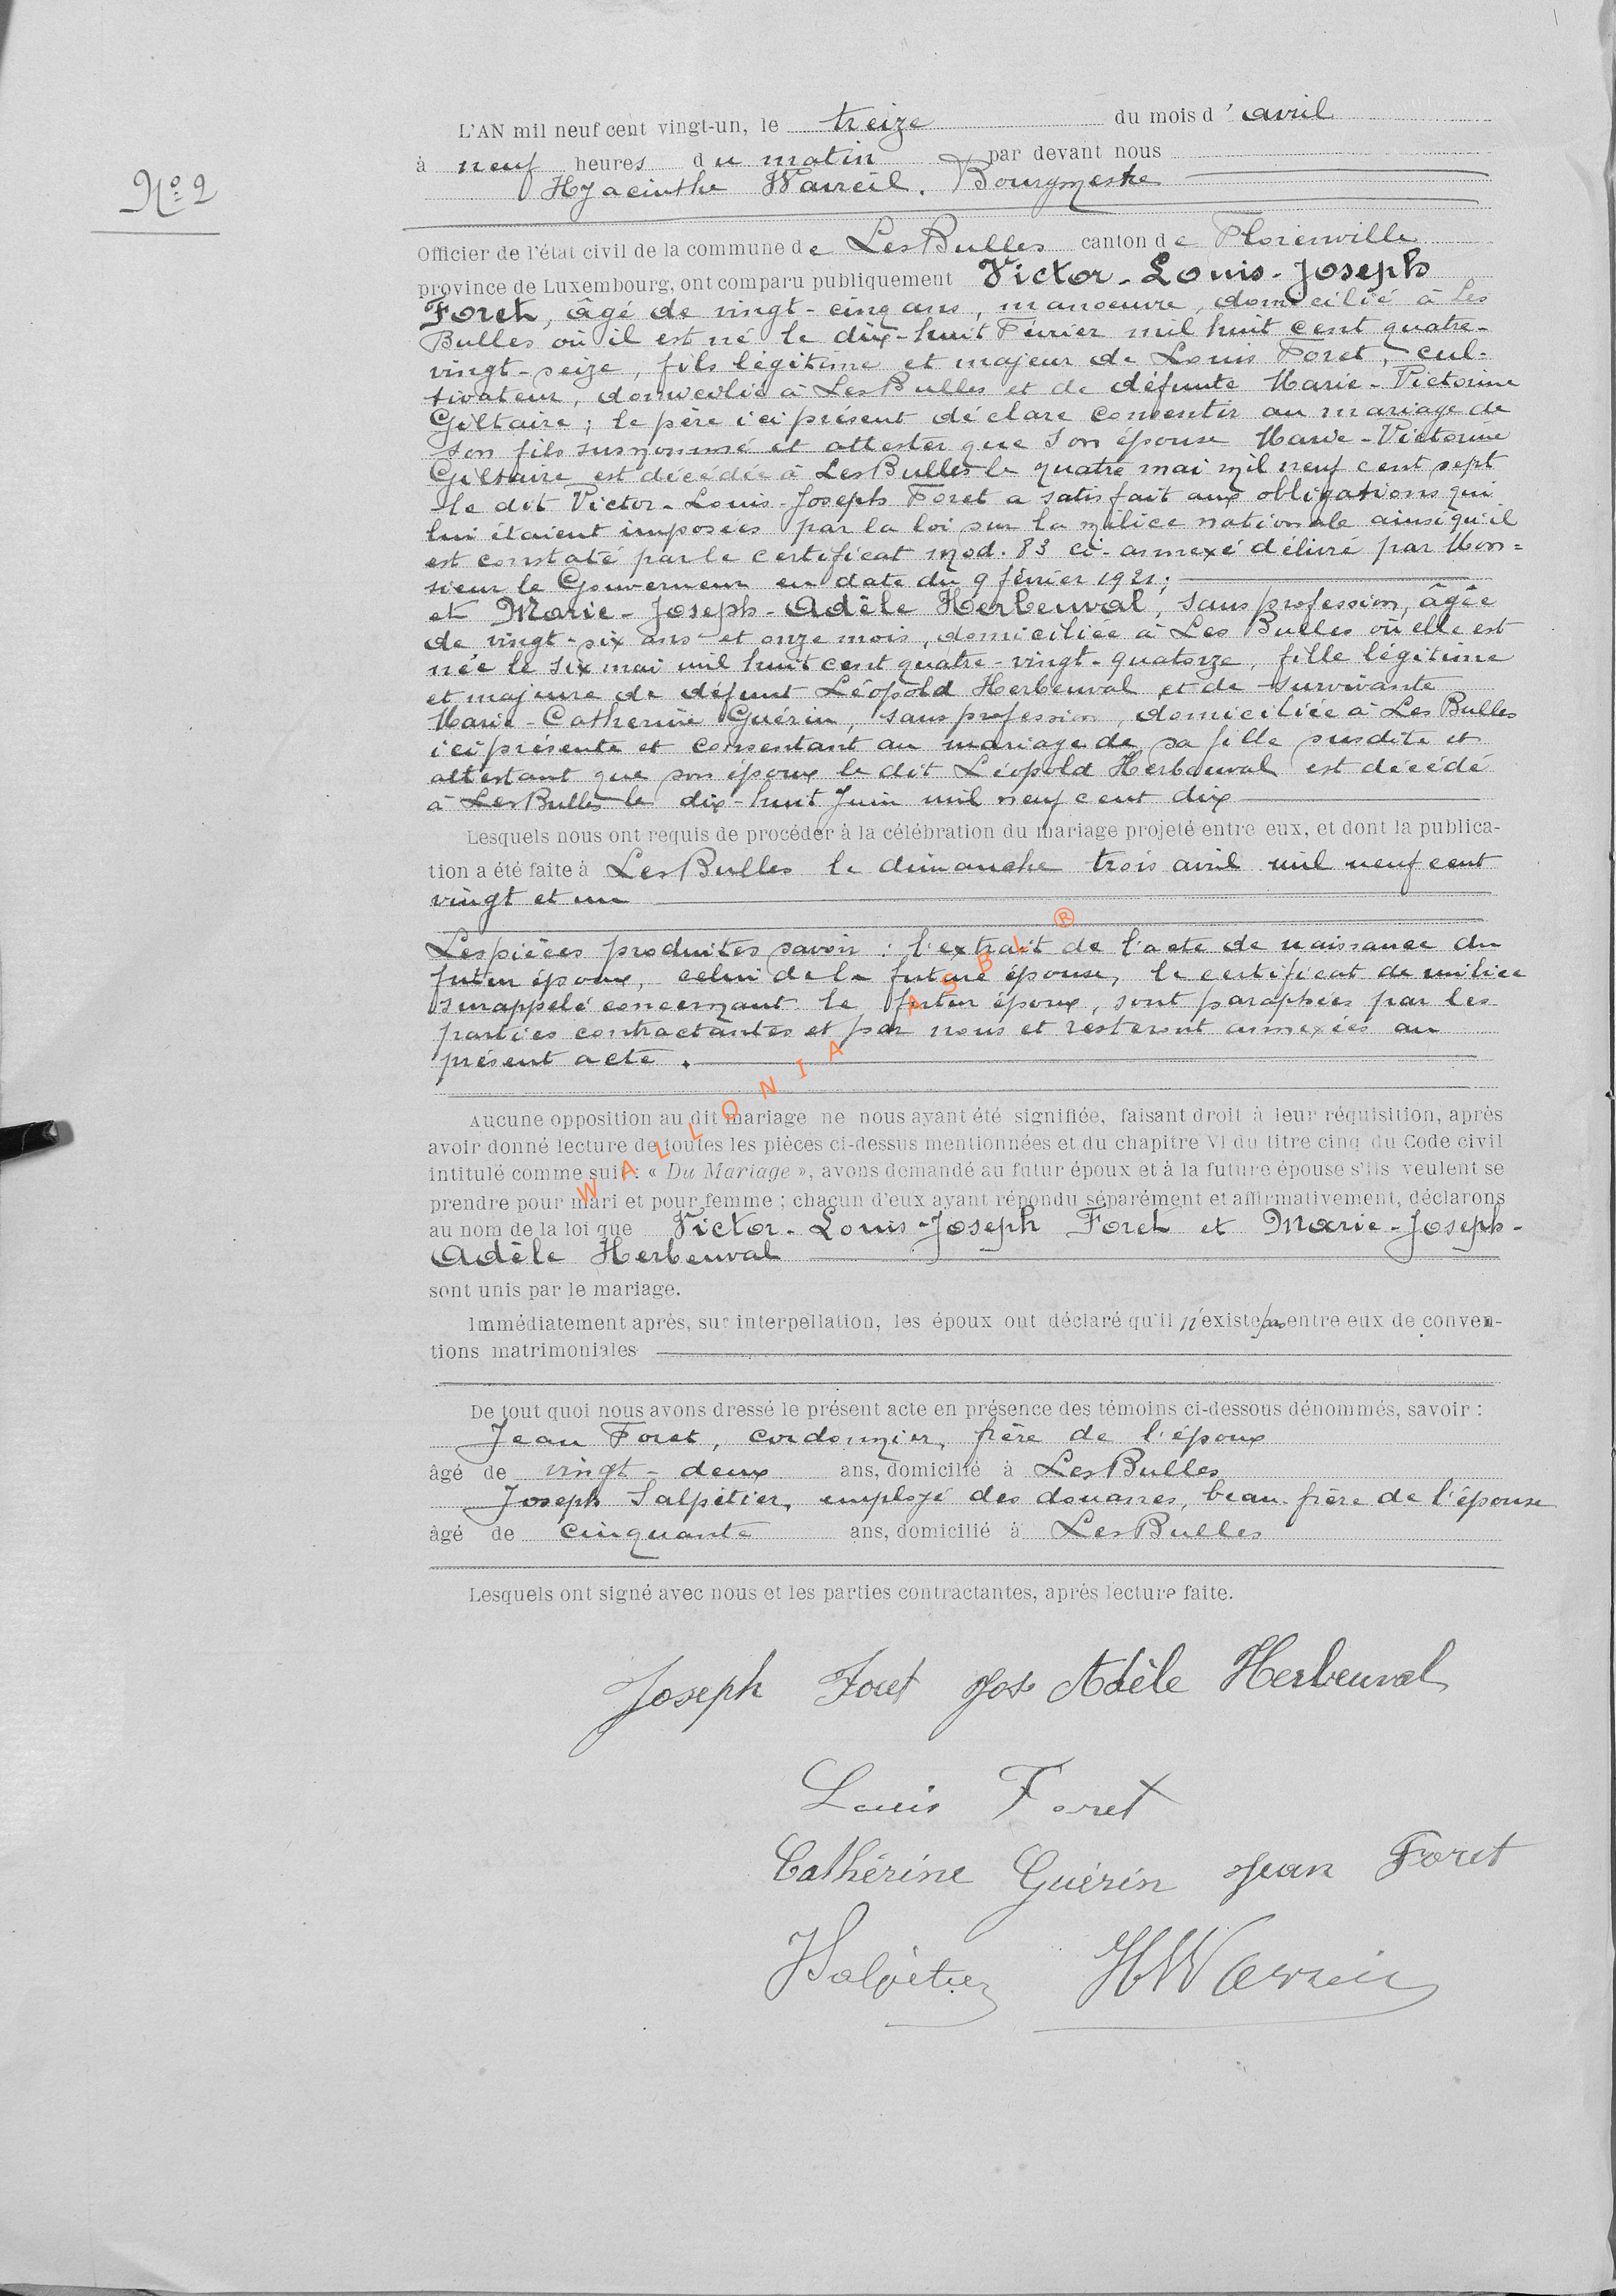 L'AN mil neuf cent vingt-un, le treize du mois d'avril
à neuf heures du matin par devant nous
N° 2
Hyacinthe Warreil, Bourgmestre
Officier de l'état civil de la commune de Les Bulles canton de Florenville
province de Luxembourg, ont comparu publiquement Victor-Louis-Joseph
Foret, âgé de vingt-cinq ans, manoeuvre, domicilié à Les
Bulles où il est né le dix-huit Février mil huit cent quatre-
vingt-seize, fils légitime et majeur de Louis Foret, cul-
tivateur, domicilié à Les Bulles et de défunte Marie-Victorine
Giltaire; le père ici présent déclare consentir au mariage de
son fils susnommé et attester que son épouse Marie-Victorine
Giltaire est décédée à Les Bulles le quatre mai mil neuf cent sept
le dit Victor-Louis-Joseph Foret a satisfait aux obligations qui
lui étaient imposées par la loi sur la milice nationale ainsi qu'il
est constaté par le certificat mod. 83 ci-annexé délivré par Mon=
sieur le Gouverneur en date du 9 février 1921;
et Marie-Joseph-Adèle Herbeuval, sans profession, âgée
de vingt-six ans et onze mois, domiciliée à Les Bulles où elle est
née le six mai mil huit cent quatre-vingt-quatorze, fille légitime
et majeure de défunt Léopold Herbeuval et de survivante
Marie-Catherine Guérin, sans profession, domiciliée à Les Bulles
ici présente et consentant au mariage de sa fille susdite et
attestant que son époux le dit Léopold Herbeuval est décédé
à Les Bulles le dix-huit Juin mil neuf cent dix
Lesquels nous ont requis de procéder à la célébration du mariage projeté entre eux, et dont la publica-
tion a été faite à Les Bulles le dimanche trois avril mil neuf cent
vingt et un
Les pièces produites savoir : l'extrait de l'acte de naissance du
futur époux, celui de la future épouse, le certificat de milice
surappelé concernant le futur époux, sont paraphées par les
parties contractantes et par nous et resteront annexées au
présent acte.
WALLONIA ASBL ®
Aucune opposition au dit mariage ne nous ayant été signifiée, faisant droit à leur réquisition, après
avoir donné lecture de toutes les pièces ci-dessus mentionnées et du chapitre VI du titre cinq du Code civil
intitulé comme suit : « Du Mariage », avons demandé au futur époux et à la future épouse s'ils veulent se
prendre pour mari et pour femme ; chacun d'eux ayant répondu séparément et affirmativement, déclarons
au nom de la loi que Victor-Louis-Joseph Foret et Marie-Joseph-
Adèle Herbeuval
sont unis par le mariage.
Immédiatement après, sur interpellation, les époux ont déclaré qu'il n'existe pas entre eux de conven-
tions matrimoniales
De tout quoi nous avons dressé le présent acte en présence des témoins ci-dessous dénommés, savoir :
Jean Foret, cordonnier, frère de l'époux
âgé de vingt-deux ans, domicilié à Les Bulles
Joseph Salpétier, employé des douanes, beau-frère de l'épouse
âgé de cinquante ans, domicilié à Les Bulles
Lesquels ont signé avec nous et les parties contractantes, après lecture faite.
Joseph Foret Jos Adèle Herbeuval
Louis Foret
Cathérine Guérin Jean Foret
JSalpétier HWarreil